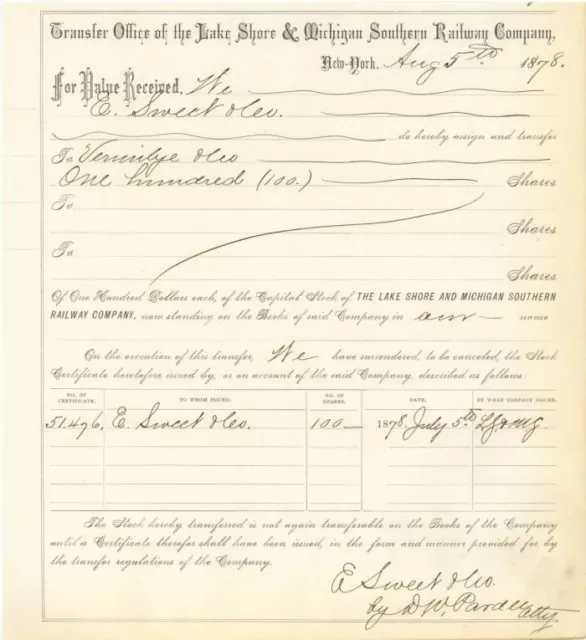 Transfer Office of the Lake Shore & Michigan Southern Railway Company,
New-York, Aug 5th 1878.
For Value Received, We
E. Sweet & Co.
do hereby assign and transfer
To Vermilye & Co
One hundred (100.) Shares
To
Shares
To
Shares
Of One Hundred Dollars each, of the Capital Stock of THE LAKE SHORE AND MICHIGAN SOUTHERN
RAILWAY COMPANY, now standing on the Books of said Company in our name
On the execution of this transfer, We have surrendered, to be canceled, the Stock
Certificate heretofore issued by, or on account of the said Company, described as follows
NO. OF CERTIFICATE. TO WHOM ISSUED. NO. OF SHARES. DATE. BY WHAT COMPANY ISSUED.
51.496. E. Sweet & Co. 100 1878 July 5th
The Stock hereby transferred is not again transferable on the Books of the Company
until a Certificate therefor shall have been issued, in the form and manner provided for by
the transfer regulations of the Company.
E Sweet & Co.
by D W. Pardee Atty.